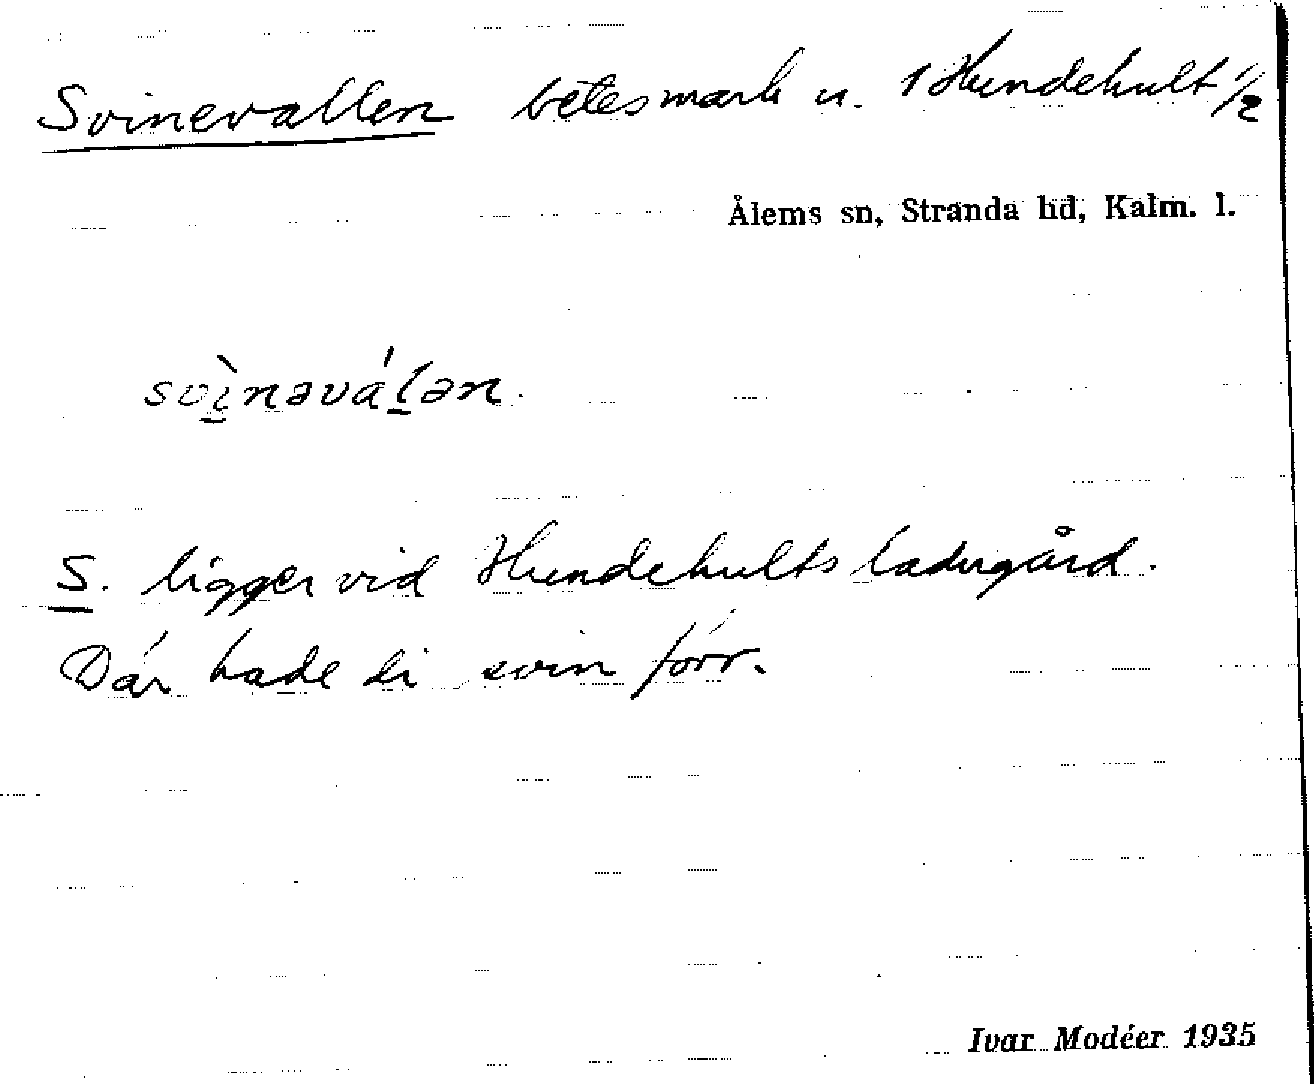 Svinevallen betesmark u. 1 Hundehult 1/2
Ålems sn, Stranda hd, Kalm. l.
svìnaválən.
S. ligger vid Hundehults ladugård.
Där hade di svin förr.
Ivar Modéer 1935